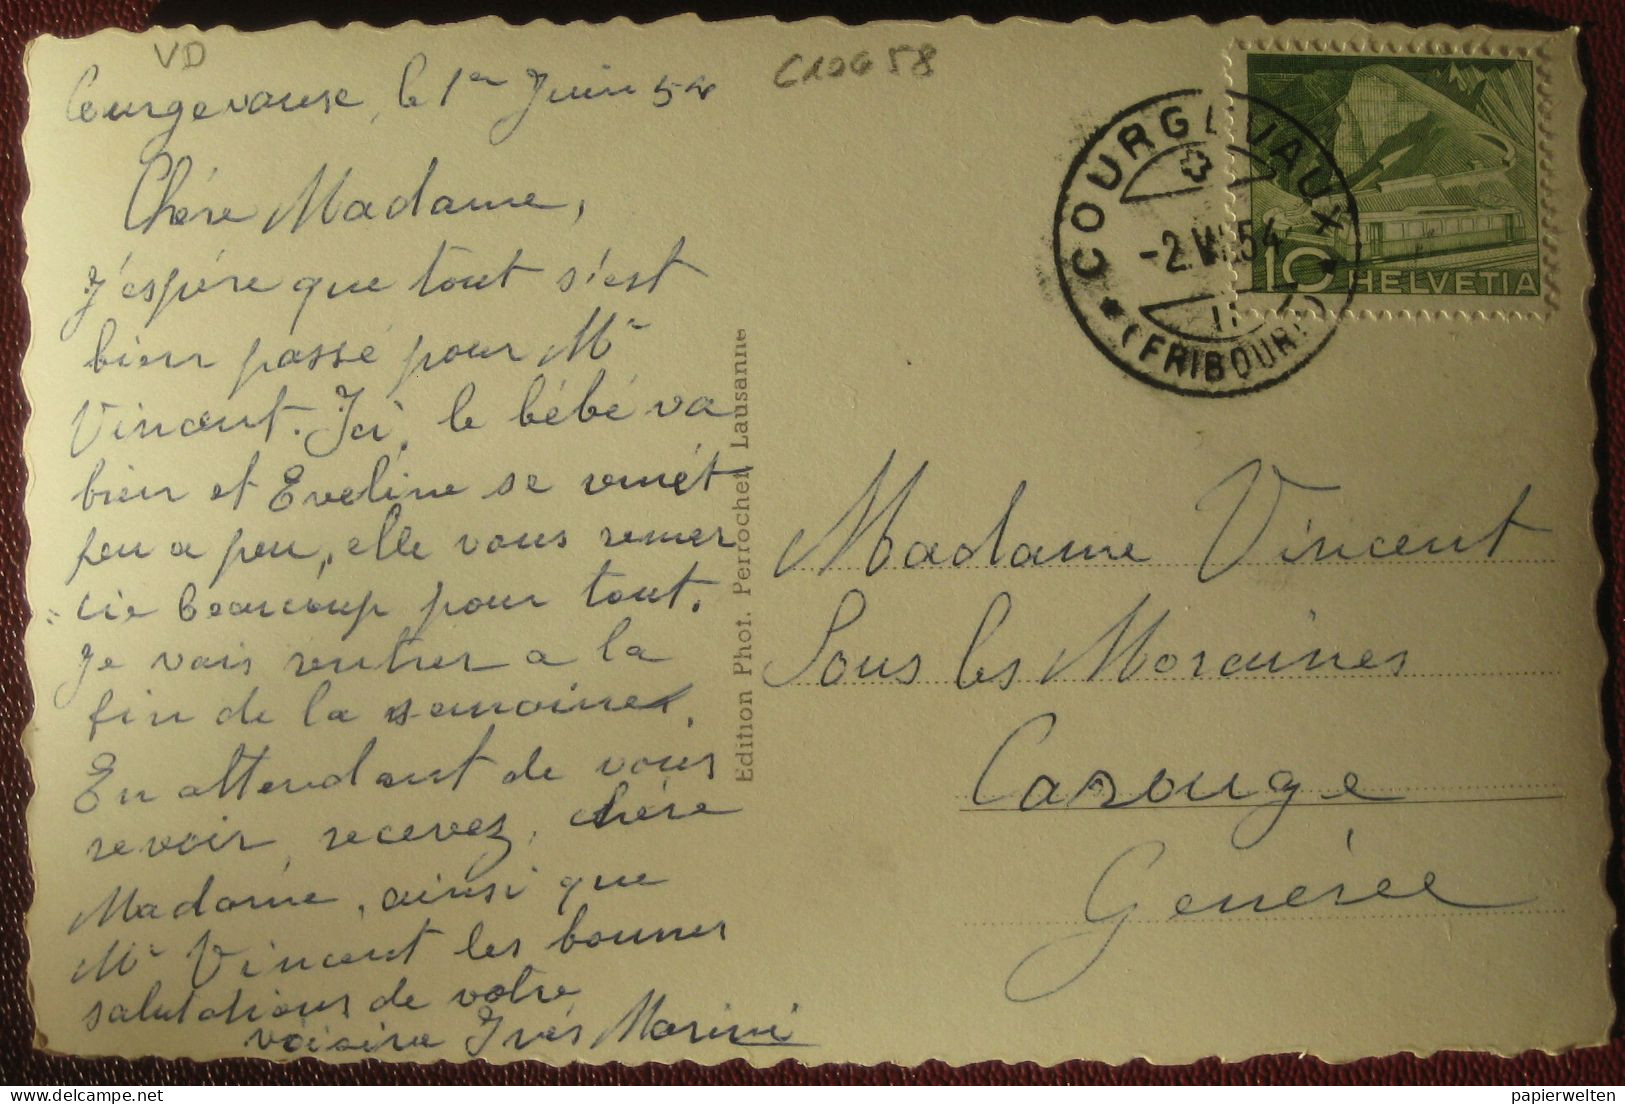 VD
C10658
Courgevause, le 1er Juin 54
Chère Madame,
J'espère que tout s'est
bien passé pour Mr
Vincent. Ici, le bébé va
bien et Eveline se remèt
peu a peu, elle vous remer
cie beaucoup pour tout.
Je vais rentrer a la
fin de la semaine.
En attendant de vous
revoir, recevez, chère
Madame, ainsi que
Mr Vincent les bonnes
salutations de votre
voisine Inès Marini
Edition Phot. Perrochet Lausanne
COURGEVAUX
-2.VI.54
(FRIBOURG)
10 HELVETIA
Madame Vincent
Sous les Moraines
Carouge
Genève
papierwelten